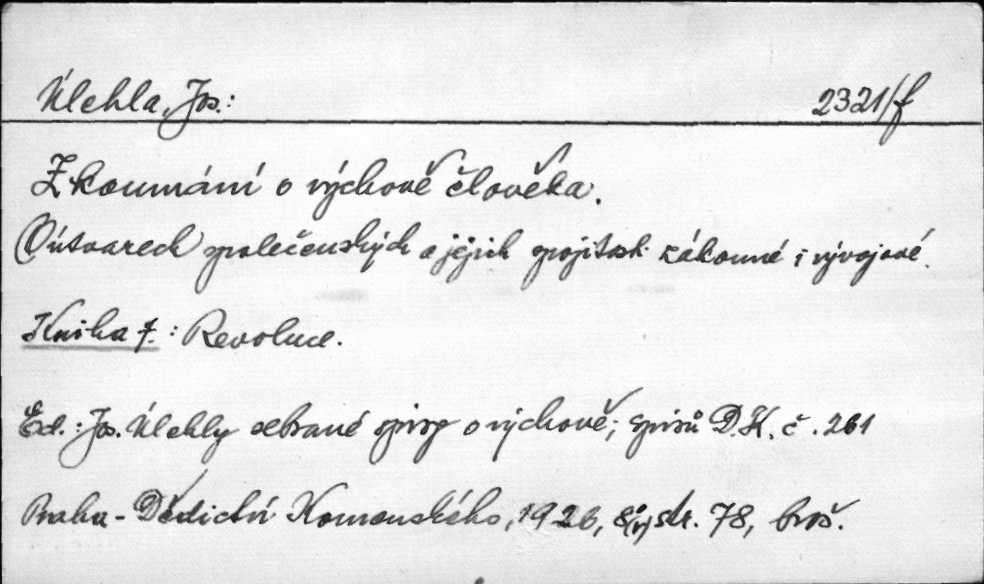 Úlehla, Jos.: 2321/f
Zkoumání o výchově člověka.
(O útvarech společenských a jejich spojitosti zákonné i vývojové.
Kniha 7.: Revoluce.
Ed.: Jos. Úlehly sebrané spisy o výchově; spisů D.K. č. 261
Praha - Dědictví Komenského, 1926, 8° str. 78, brož.